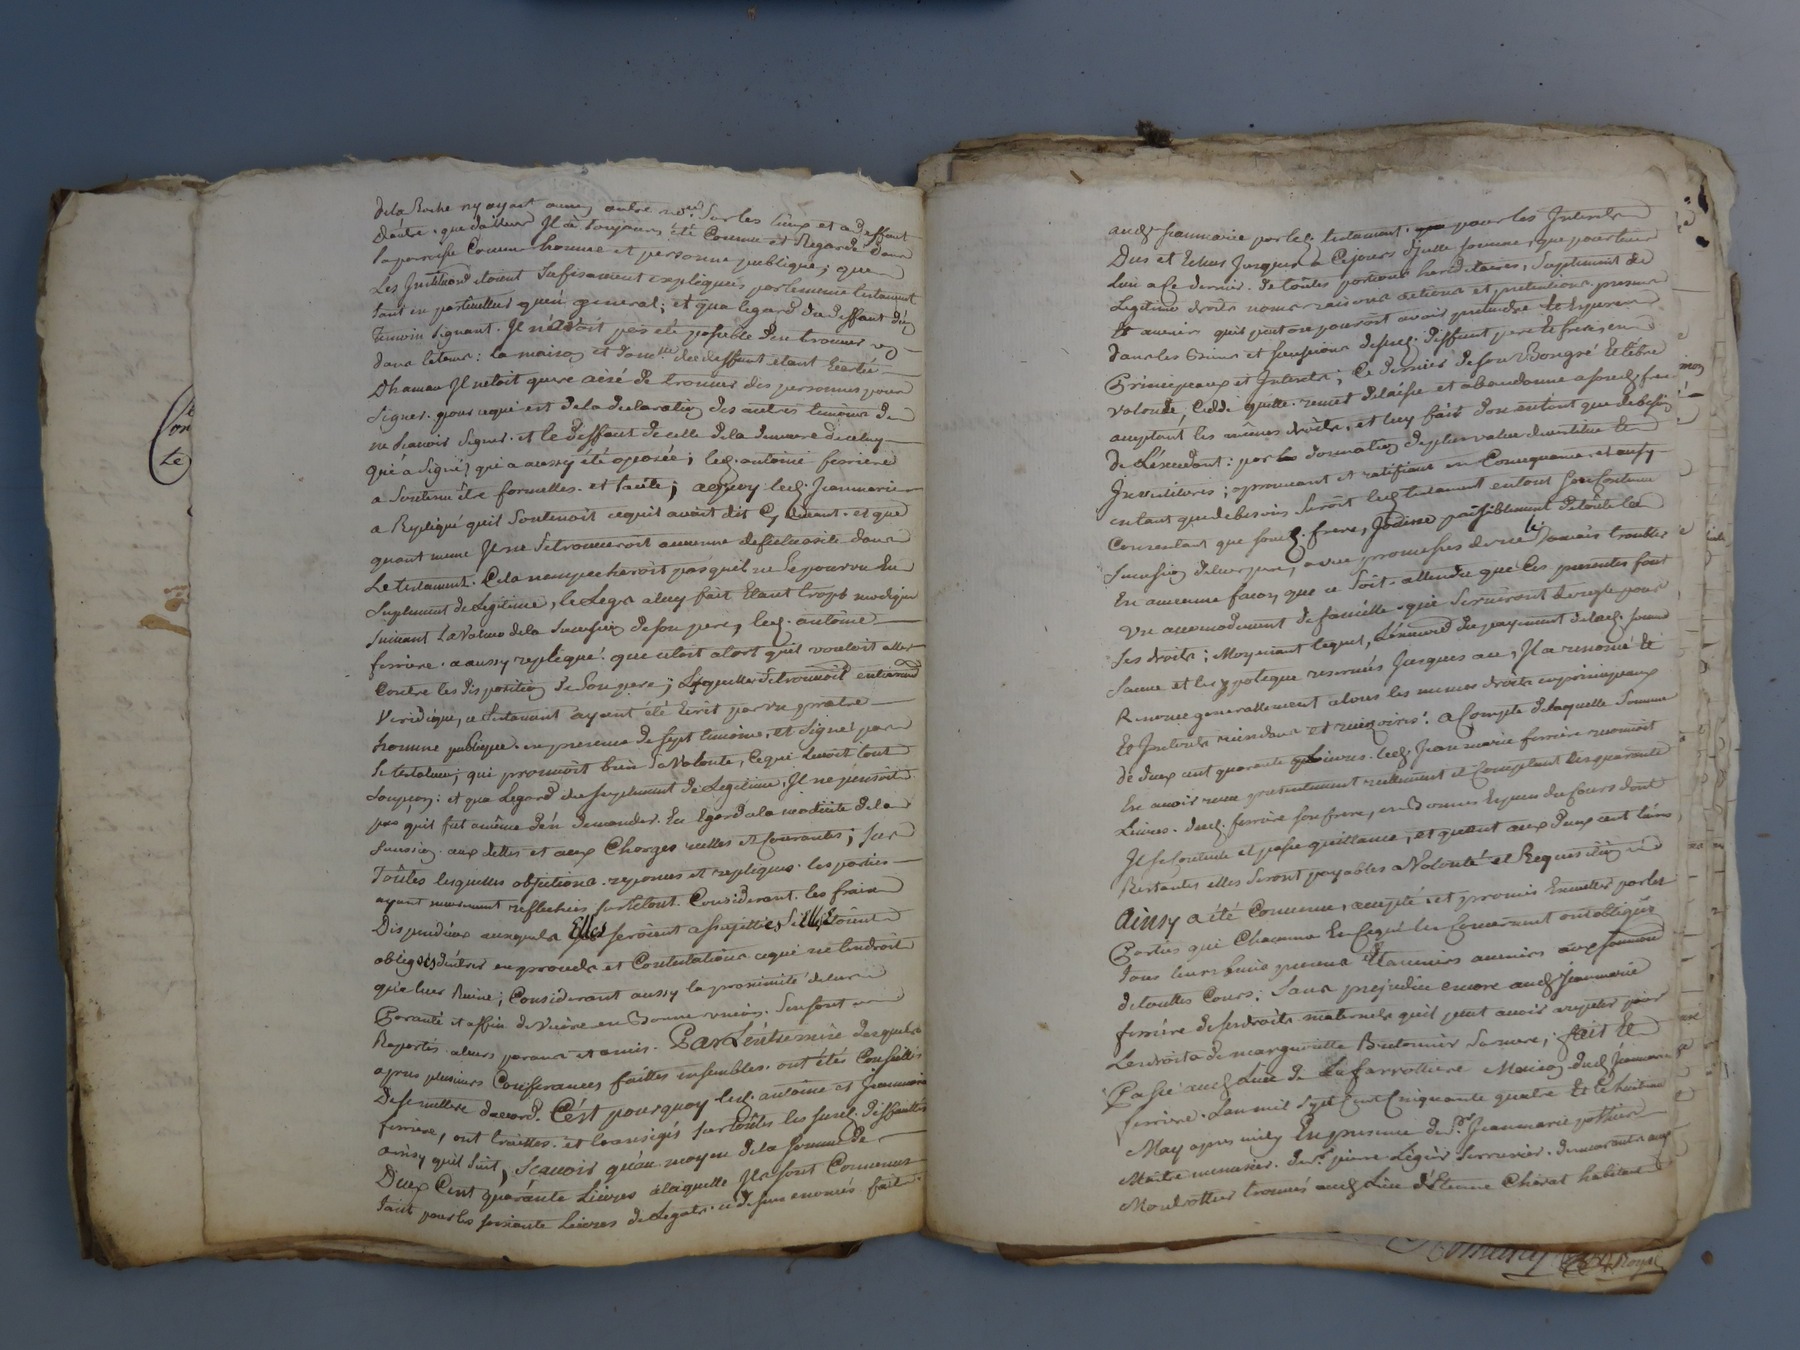 dela Roche ny ayant aucun autre no.re Sur les Lieux et a deffaut
Dautre. que dailleurs Il a toujours été Connu et Regardé Dans
la paroisse Comme homme et personne publique; que
Les Intentions étoient Sufisament expliquées par le meme testament
tant en particullier quen general; et qua legard du deffaut dun
Temoin Signant. Il n'avoit pas été possible den trouver
dans le tems: la maison et dom.lle dud deffunt etant Ecartée
Dhameau Il netoit guere aisé de trouver des personnes pour
Signer. pour ce qui est de la declaration des autres temoins de
ne Scavoir Signer. et le deffaut de celle de la demeure de celuy
qui a Signé, qui a aussy été oposée; led. antoine ferriere
a Soutenu être formelles. et tacite; aquoy led. Jeanmarie
a Repliqué quil Soutenoit cequil avoit dit Cy devant. et que
quant meme Il ne Se trouveroit aucunne defectuosité dans
Le testament. Cela nempecheroit pas quil ne Se pourvu En
Suplement de Legitime, le Legs a luy fait Etant trop modique
Suivant La Valeur de la Succession de Son pere, led. antoine
ferriere. a aussy repliqué. que cetoit a tort quil vouloit aller
Contre les disposition de Son pere; Lesquelles Se trouvoit entierement
Veridique, ce testament ayant été Ecrit par un pretre
homme publique. en presence de Sept temoins, et Signé par
le testateur; qui prouvoit bien Sa Volonté, Cequi Levoit tout
Soupçon: et qua Legard du Suplement de Legitime, Il ne pensoit
pas quil fut amême den demander. Eu Egard a la modicité de la
Succession. aux dettes et aux Charges reelles et Courantes; Sur
Toutes lesquelles objections. reponses et repliques. les parties
ayant meurement reflechies Sur le tout. Considerant. les frais
Dispendieux auxquels Elles Seroient assujetties Si Elles Etoient
obligées dentrer en procès et Contestations cequi ne tendroit
qua leur Ruine; Considerant aussy la proximité de leur
Parenté et affin de Vivre en Bonne union. Sen font
Raportés. aleurs parans et amis. Par L'entremise desquels
apres plusieurs Conferances faittes ensembles. ont étés Conseillés
De Se mettre daccord. C'est pourquoy led. antoine et Jeanmarie
ferriere, ont traittés. et transigés Sur toutes les Susd. difficultés
ainsy quil Suit, Scavoir qu'au moyen de la Somme de
Deux Cent quarante Livres a laquelle Ils Sont Convenus
tant pour les soixante Livres de Legats. cy dessus enoncés fait
aud. Jeanmarie par led. testament. que pour les Interets
Dus et Echus Jusques a Cejours dicelle Somme, que pour tenir
Lieu a Ce dernier. de toutes portions hereditaires, Suplement de
Legitime droits noms raisons actions et pretentions present
Et avenir quil peut ou pouroit avoir pretendre Et Esperer
dans les Biens et Successions desusd. deffunt pere et freres en
Principeaux et Interets; Ce dernier de Son Bongré Et libre
Volonté, Cedde quitte. remet delaisse et abandonne a Sond. frere
acceptant les mêmes droits. et luy fait don entant que de besoin
de L'exceedant: par donnation de plus value dentreuve Et
Irrevocables; aprouvant et ratifiant en Consequance et aussy
entant que de besoins Seroit led. testament en tout Son Contenu
Consentant que Sond. frere, Joüisse paisiblement de toute la
Succession de leur pere, avec promesses de ne le Jamais troubler
En aucunne facon que ce Soit. attendu que les presentes font
Un accomodement de famille. qui Serviront de regle pour
Ses droits; Moyennant lequel, Ensemble du payement de lad. Somme
Sauve et les ypoteque reservés Jusques au, Il a renoncé Et
Renonce generallement a tous les memes droits en principeaux
Et Interets rescindans et rescisoirs. aCompte de laquelle Somme
de deux cent quarante Livres. led. Jean marie ferriere reconnoit
En avoir recu presentement reellement et Comptant Les quarante
Livres. dud. ferriere Son frere, en Bonnes Especes du Cours dont
Il Se Contente et passe quittance, et quant aux Deux cent Livres
Restantes elles Seront payables a Volonté et Requisition
Ainsy a été Convenu, accepté et promis Executter par les
Parties qui Chacunne En Cequi les Concernent ont obligés
tous leurs biens presens Et avenirs avenirs aux Soumissions
de touttes Cours: Sans prejudice encore aud. Jeanmarie
ferriere de Ses droits maternels quil peut avoir arejeter pour
Les droits de marguerite Butonnier Sa mere; fait Et
Passé aud. Lieu de La farrottiere Maison dud. Jeanmarie
ferriere. L'an mil Sept Cent Cinquante quatre Et le huitieme
May apres midy En presence de S.r Jeanmarie pothier
Maitre menuisier. de S.r pierre Légier Serrurier. demeurants aux
Montrottier trouvés aud. Lieu d'Etienne Cherat habitant